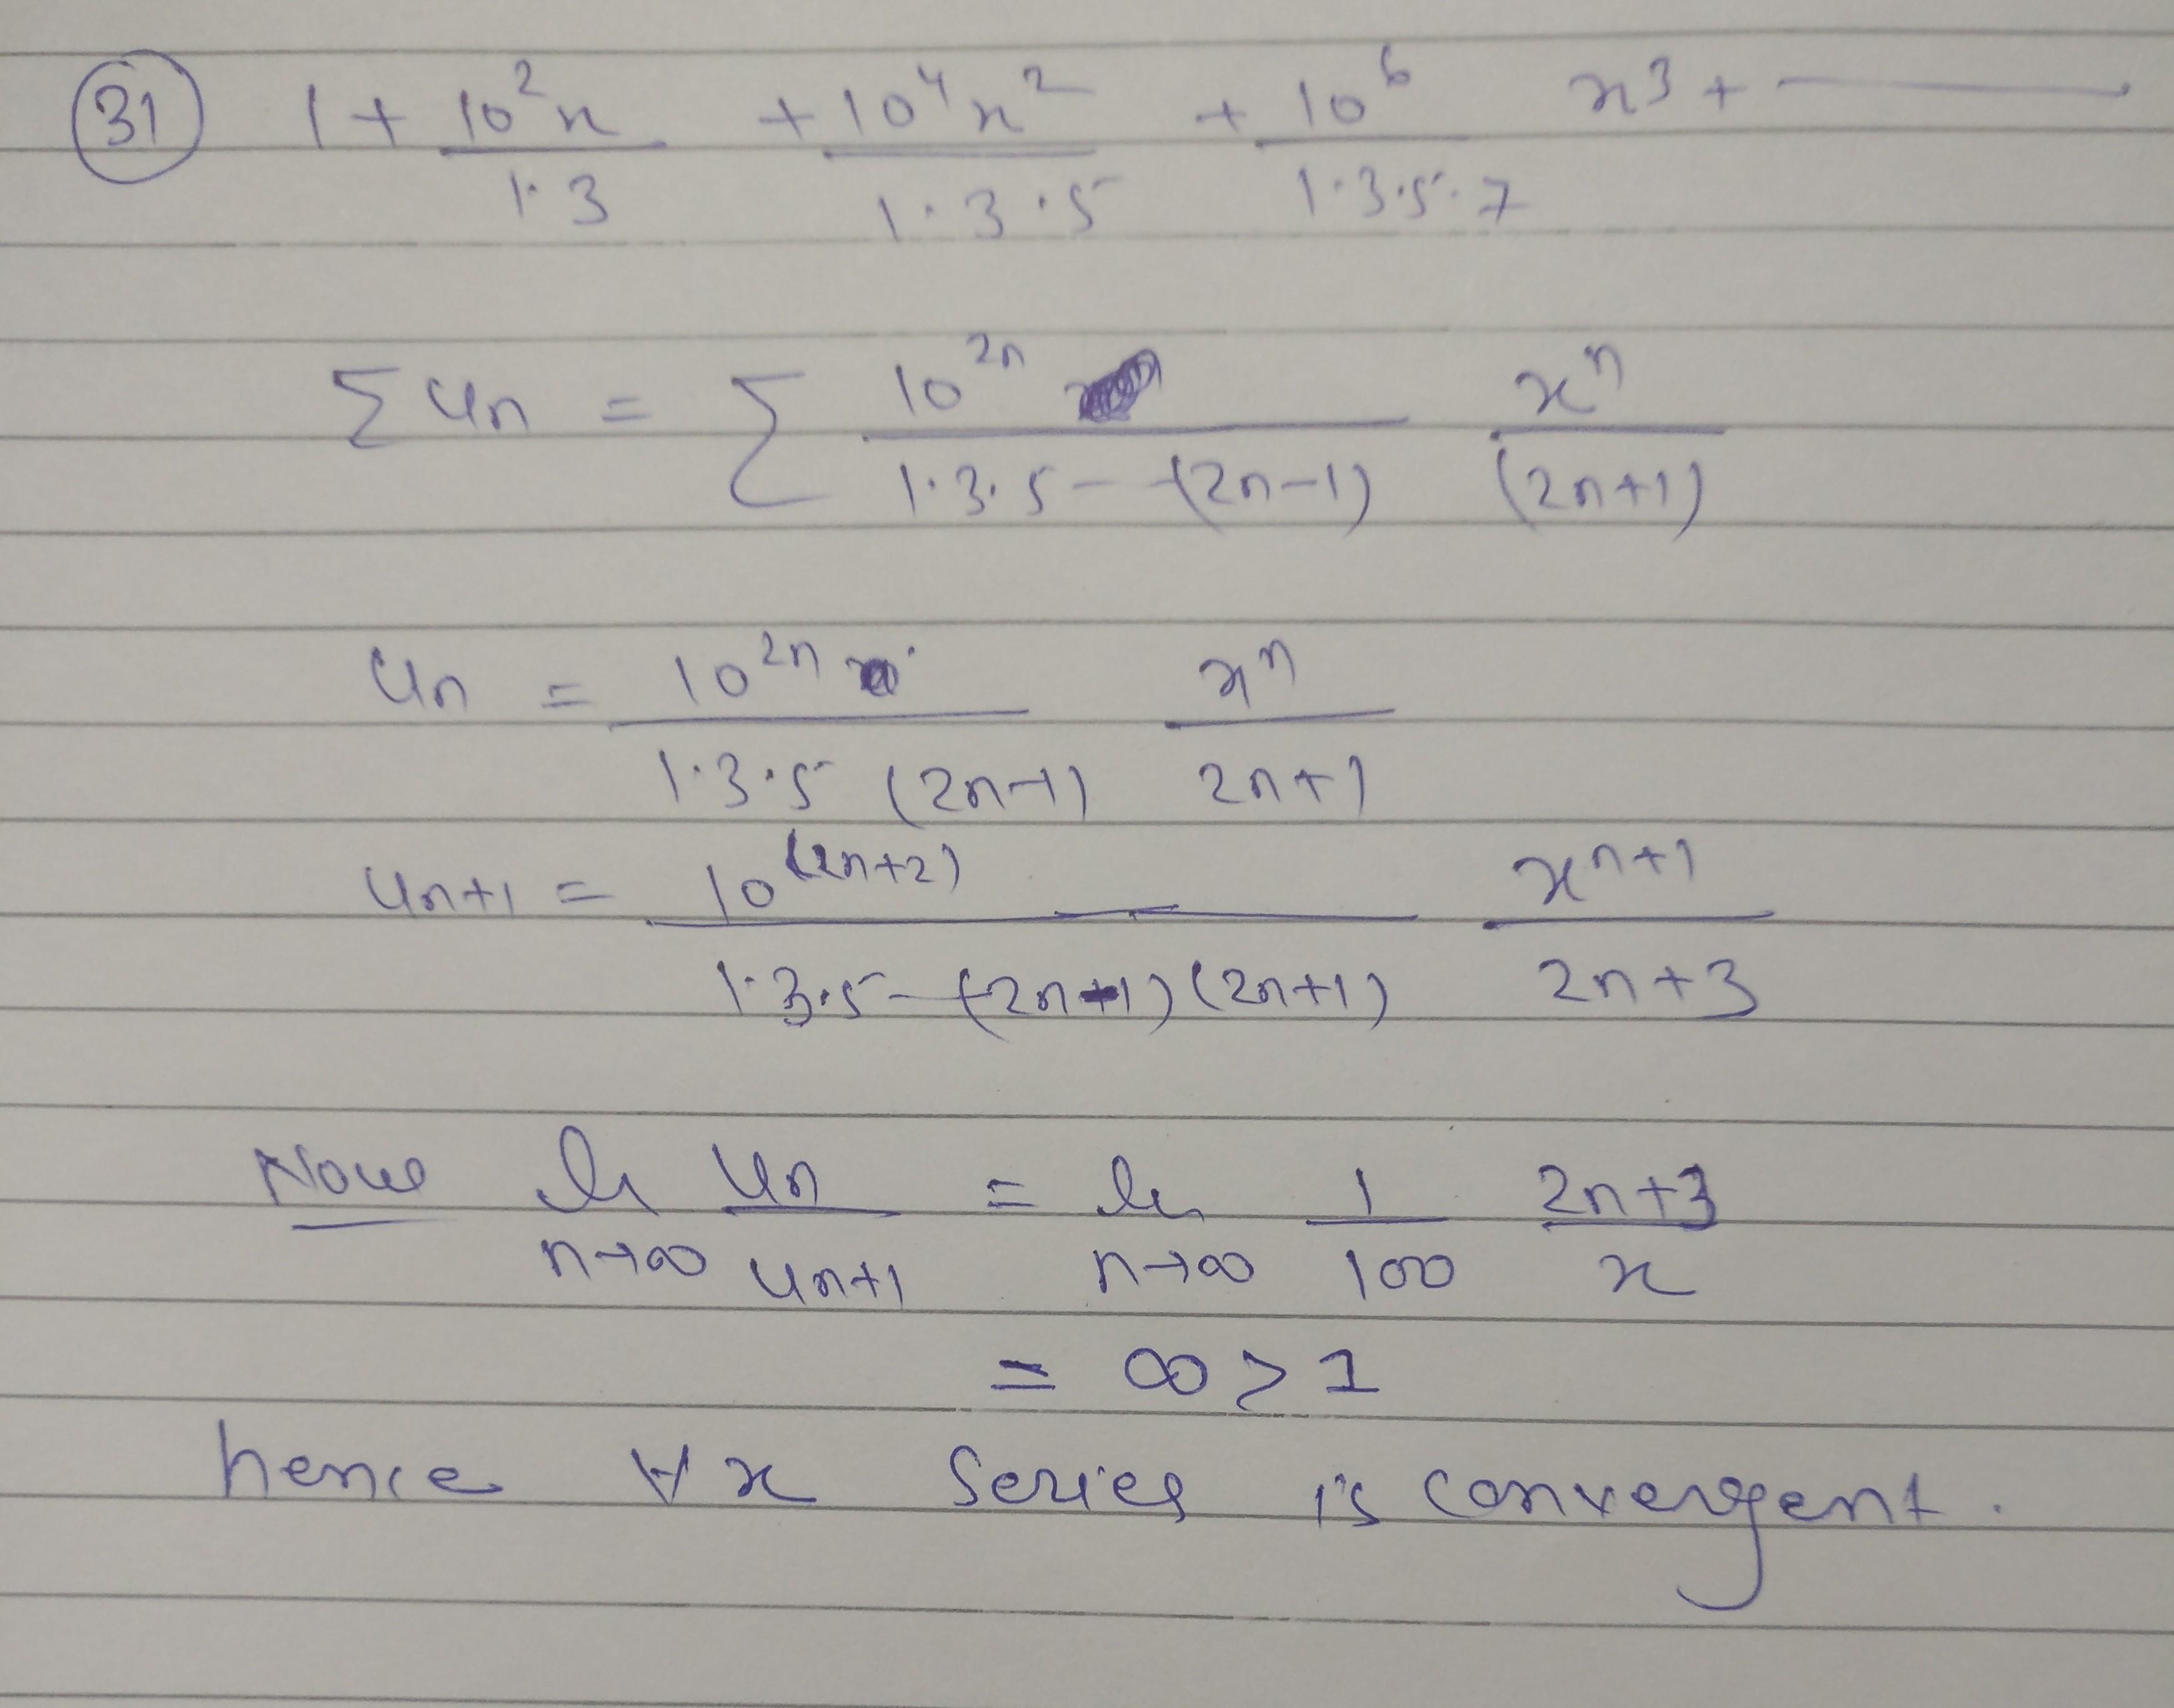 31 1 + 10²x/1·3 + 10⁴x²/1·3·5 + 10⁶/1·3·5·7 x³ + ———
Σun = Σ 10²ⁿ/1·3·5--(2n-1) xⁿ/(2n+1)
un = 10²ⁿ/1·3·5 (2n-1) xⁿ/2n+1
un+1 = 10⁽²ⁿ⁺²⁾/1·3·5--(2n-1)(2n+1) xⁿ⁺¹/2n+3
Now lim n→∞ un/un+1 = lim n→∞ 1/100 2n+3/x
= ∞ > 1
hence ∀ x series is convergent.